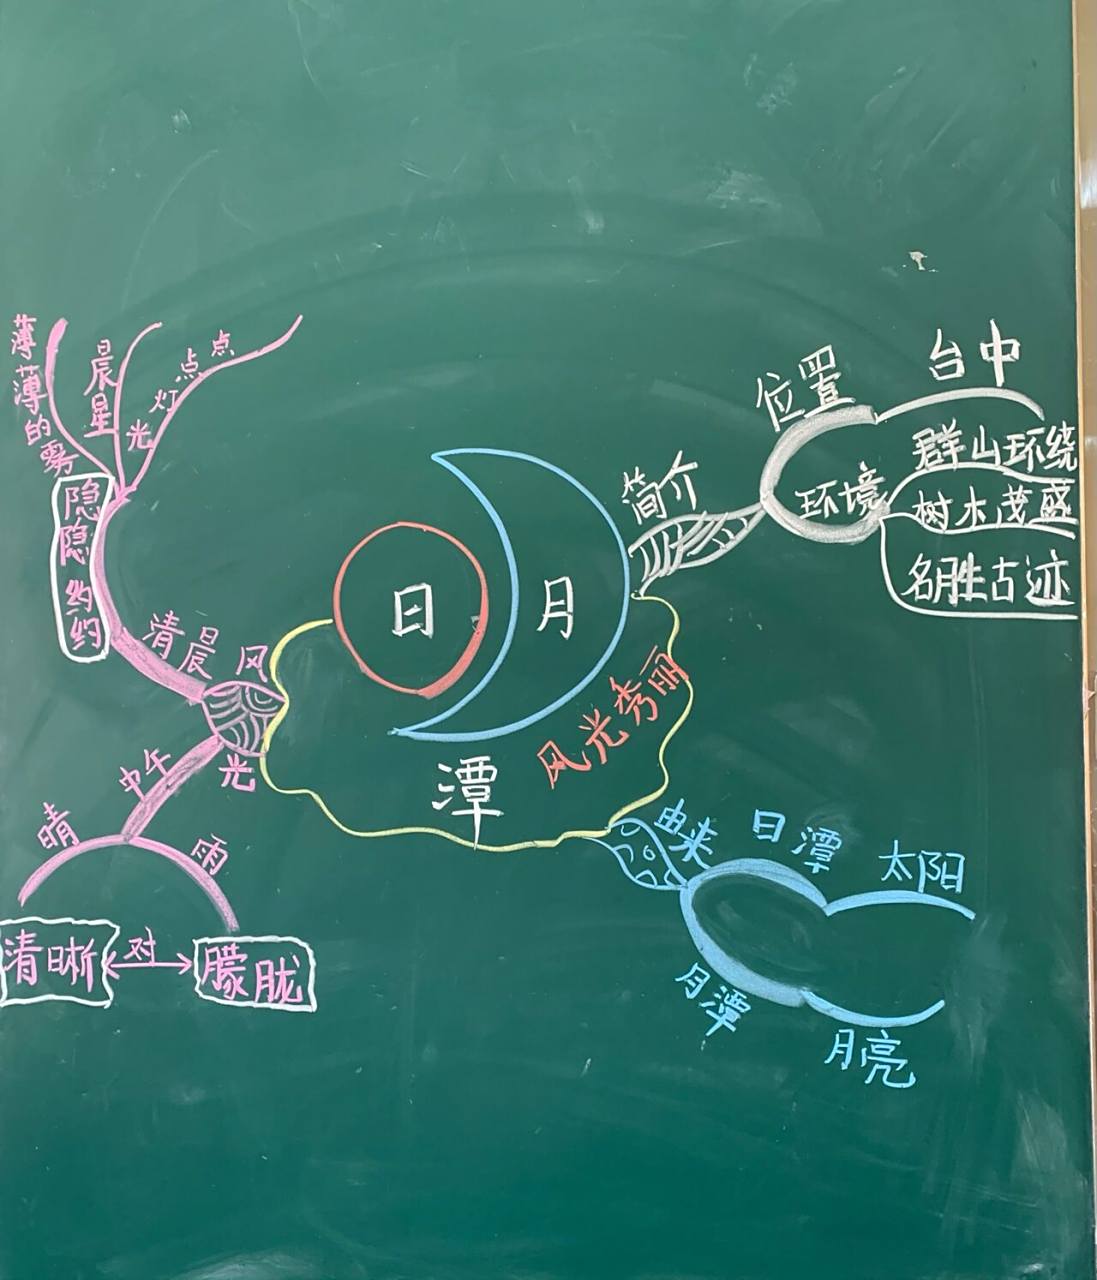 日月
潭
风光秀丽
简介
位置
台中
环境
群山环绕
树木茂盛
名胜古迹
由来
日潭
太阳
月潭
月亮
风光
清晨
隐隐约约
薄薄的雾
晨星
点点灯光
中午
晴
雨
清晰
对
朦胧